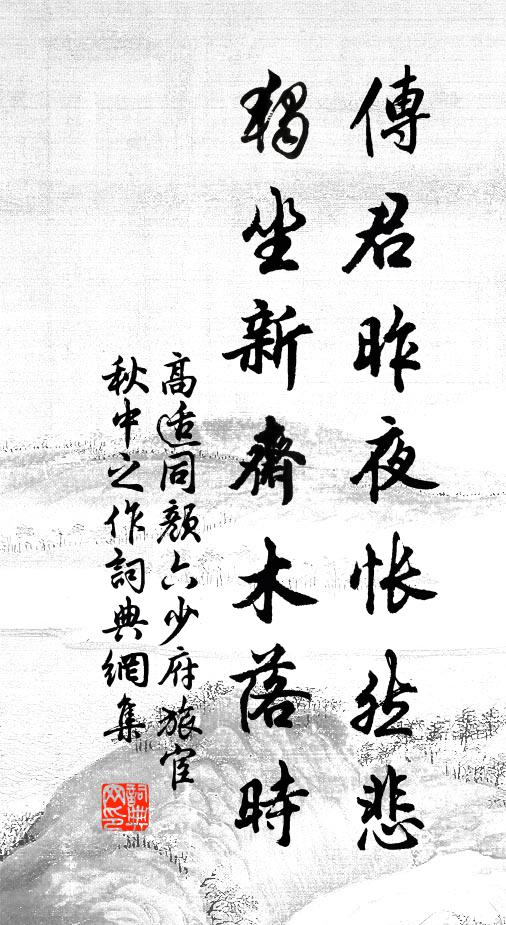 傳君昨夜悵然悲
獨坐新齋木落時
高适同顏六少府旅宦
秋中之作詞典網集